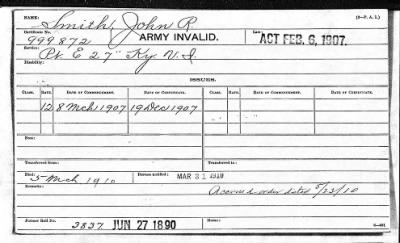 NAME: Smith, John R (3—P. A. I.)
Certificate No. 999872 ARMY INVALID. Law: ACT FEB. 6, 1907.
Service: Pvt. E 27" Ky. V. I.
Disability:
ISSUES.
CLASS. RATE. DATE OF COMMENCEMENT. DATE OF CERTIFICATE. CLASS. RATE. DATE OF COMMENCEMENT. DATE OF CERTIFICATE.
12 8 Mch 1907 19 Dec 1907
Transferred from: Transferred to:
Died: 5 Mch 1910 Bureau notified: MAR 31 1910
Remarks: Accrued order dated 5/23/10
Former Roll No. 3837 JUN 27 1890 Home: